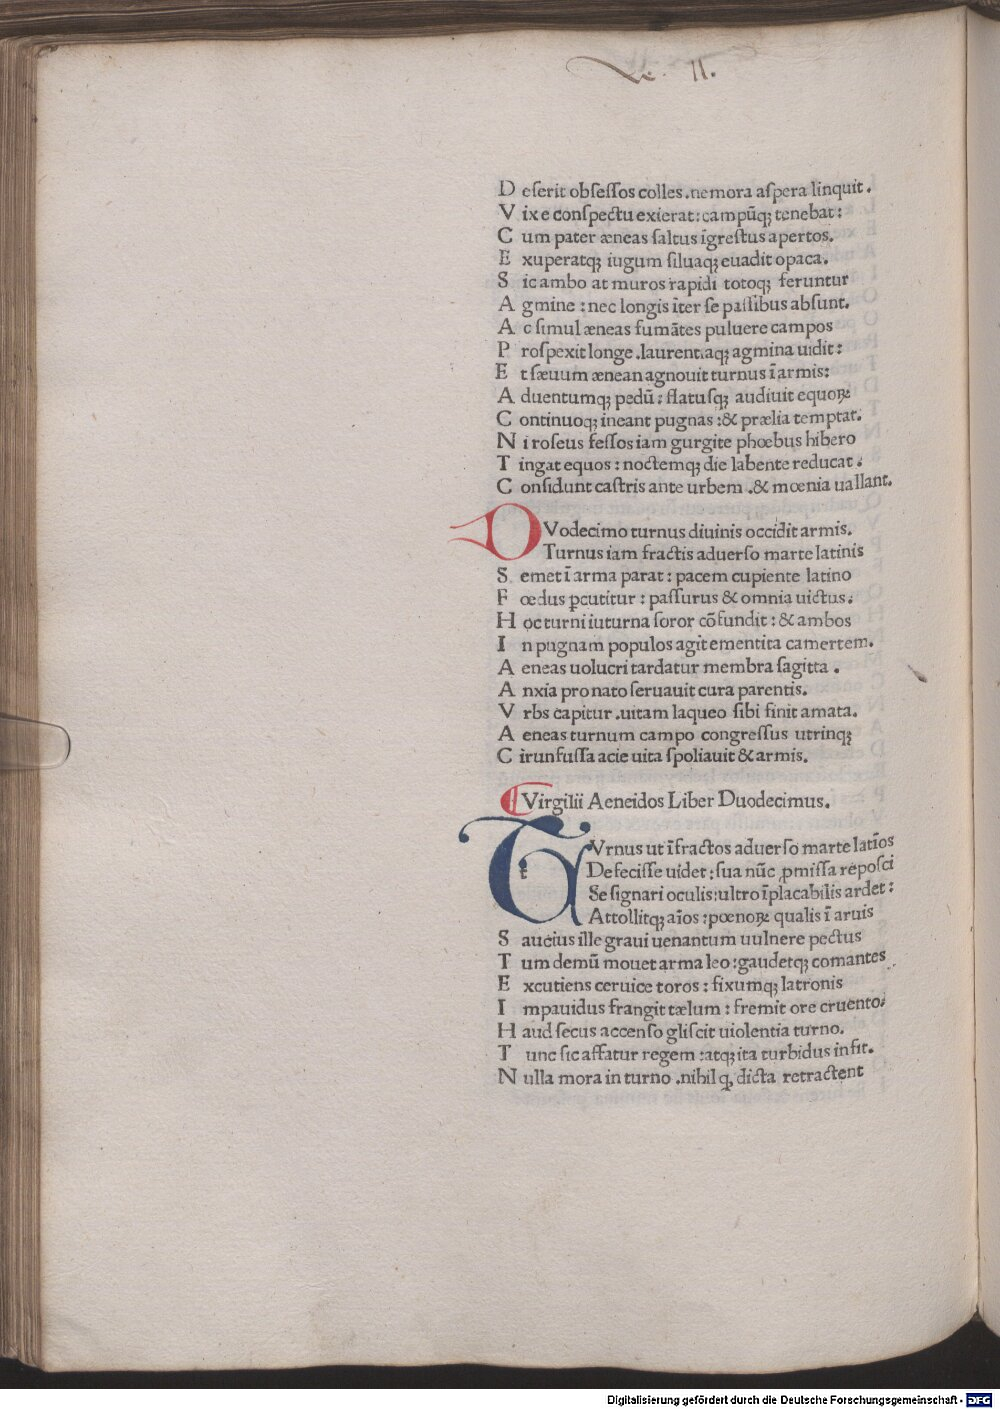 Ae. 11.
D eserit obsessos colles .nemora aspera linquit.
V ix e conspectu exierat: campūq; tenebat:
C um pater æneas saltus īgrestus apertos.
E xuperatq; iugum siluaq; euadit opaca.
S ic ambo at muros rapidi totoq; feruntur
A gmine : nec longis īter se passibus absunt.
A c simul æneas fumātes puluere campos
P rospexit longe .laurentiaq; agmina uidit:
E t sæuum ænean agnouit turnus ī armis:
A duentumq; pedū: flatusq; audiuit equoꝝ
C ontinuoq; ineant pugnas :& prælia temptat.
N i roseus fessos iam gurgite phœbus hibero
T ingat equos : noctemq; die labente reducat.
C onsidunt castris ante urbem .& mœnia uallant.
DVodecimo turnus diuinis occidit armis.
Turnus iam fractis aduerso marte latinis
S emet ī arma parat : pacem cupiente latino
F œdus ꝑcutitur : passurus & omnia uictus.
H oc turni iuturna soror cōfundit : & ambos
I n pugnam populos agit ementita camertem.
A eneas uolucri tardatur membra sagitta .
A nxia pro nato seruauit cura parentis.
V rbs capitur .uitam laqueo sibi finit amata.
A eneas turnum campo congressus utrinq;
C irunfussa acie uita spoliauit & armis.
Virgilii Aeneidos Liber Duodecimus.
TVrnus ut īfractos aduerso marte latīos
Defecisse uidet : sua nūc ꝓmissa reposci
Se signari oculis: ultro īplacabilis ardet:
Attollitq; aīos : pœnoꝝ qualis ī aruis
S aucius ille graui uenantum uulnere pectus
T um demū mouet arma leo : gaudetq; comantes
E xcutiens ceruice toros : fixumq; latronis
I mpauidus frangit tælum : fremit ore cruento.
H aud secus accenso gliscit uiolentia turno.
T unc sic affatur regem : atq; ita turbidus infit.
N ulla mora in turno .nihil q, dicta retractent
Digitalisierung gefördert durch die Deutsche Forschungsgemeinschaft - DFG